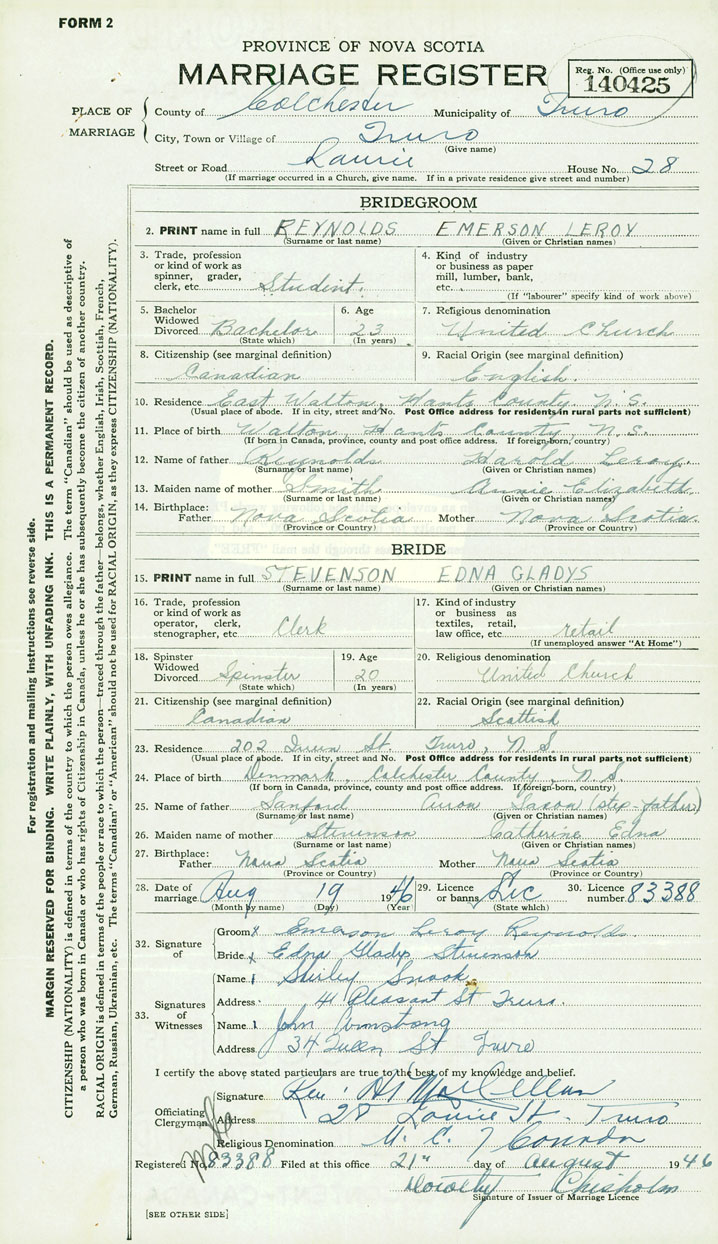 FORM 2
PROVINCE OF NOVA SCOTIA
MARRIAGE REGISTER
Reg. No. (Office use only)
140425
PLACE OF MARRIAGE
County of Colchester Municipality of Truro
City, Town or Village of Truro
(Give name)
Street or Road Laurie House No. 28
(If marriage occurred in a Church, give name. If in a private residence give street and number)
BRIDEGROOM
2. PRINT name in full REYNOLDS EMERSON LEROY
(Surname or last name) (Given or Christian names)
3. Trade, profession or kind of work as spinner, grader, clerk, etc. Student.
4. Kind of industry or business as paper mill, lumber, bank, etc.
(If "labourer" specify kind of work above)
5. Bachelor Widowed Divorced Bachelor (State which)
6. Age 23 (In years)
7. Religious denomination United Church
8. Citizenship (see marginal definition) Canadian
9. Racial Origin (see marginal definition) English.
10. Residence East Walton, Hants County, N.S.
(Usual place of abode. If in city, street and No. Post Office address for residents in rural parts not sufficient)
11. Place of birth Walton, Hants County N.S.
(If born in Canada, province, county and post office address. If foreign-born, country)
12. Name of father Reynolds Harold Leroy.
(Surname or last name) (Given or Christian names)
13. Maiden name of mother Smith Annie Elizabeth
(Surname or last name) (Given or Christian names)
14. Birthplace: Father Nova Scotia Mother Nova Scotia.
(Province or Country) (Province or Country)
BRIDE
15. PRINT name in full STEVENSON EDNA GLADYS
(Surname or last name) (Given or Christian names)
16. Trade, profession or kind of work as operator, clerk, stenographer, etc. Clerk
17. Kind of industry or business as textiles, retail, law office, etc. retail
(If unemployed answer "At Home")
18. Spinster Widowed Divorced Spinster (State which)
19. Age 20 (In years)
20. Religious denomination United Church
21. Citizenship (see marginal definition) Canadian
22. Racial Origin (see marginal definition) Scottish
23. Residence 202 St. Truro, N.S.
(Usual place of abode. If in city, street and No. Post Office address for residents in rural parts not sufficient)
24. Place of birth Denmark, Colchester County, N.S.
(If born in Canada, province, county and post office address. If foreign-born, country)
25. Name of father Sanford (step-father)
(Surname or last name) (Given or Christian names)
26. Maiden name of mother Stevenson Catherine Edna
(Surname or last name) (Given or Christian names)
27. Birthplace: Father Nova Scotia Mother Nova Scotia
(Province or Country) (Province or Country)
28. Date of marriage Aug 19 1946
(Month by name) (Day) (Year)
29. Licence or banns Lic (State which)
30. Licence number 83388
32. Signature of
Groom x Emerson Leroy Reynolds.
Bride x Edna Gladys Stevenson
33. Signatures of Witnesses
Name Shirley Snook
Address 41 Pleasant St Truro.
Name John Armstrong
Address 34 Queen St Truro
I certify the above stated particulars are true to the best of my knowledge and belief.
Officiating Clergyman
Signature Rev. MacLellan
Address 28 Laurie St. Truro
Religious Denomination U. C. of Canada
Registered No. 83388 Filed at this office 21st day of August 1946
Dorothy Chisholm
Signature of Issuer of Marriage Licence
[SEE OTHER SIDE]
For registration and mailing instructions see reverse side.
MARGIN RESERVED FOR BINDING. WRITE PLAINLY, WITH UNFADING INK. THIS IS A PERMANENT RECORD.
CITIZENSHIP (NATIONALITY) is defined in terms of the country to which the person owes allegiance. The term "Canadian" should be used as descriptive of
a person who was born in Canada or who has rights of Citizenship in Canada, unless he or she has subsequently become the citizen of another country.
RACIAL ORIGIN is defined in terms of the people or race to which the person—traced through the father—belongs, whether English, Irish, Scottish, French,
German, Russian, Ukrainian, etc. The terms "Canadian" or "American" should not be used for RACIAL ORIGIN, as they express CITIZENSHIP (NATIONALITY).